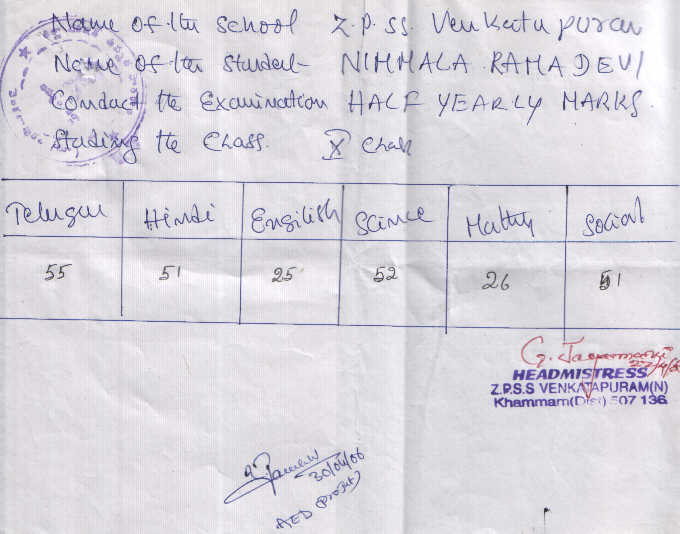 Name of the school Z.P.SS. Venkatapuram
Name of the Student- NIMMALA RAMADEVI
Conduct the Examination HALF YEARLY MARKS.
Studing the Class. X Class
Telugu Hindi Engilish Science Maths Social
55 51 25 52 26 51
HEADMISTRESS
Z.P.S.S VENKATAPURAM(N)
Khammam(Dist) 507 136
30/04/06
AED (Project)